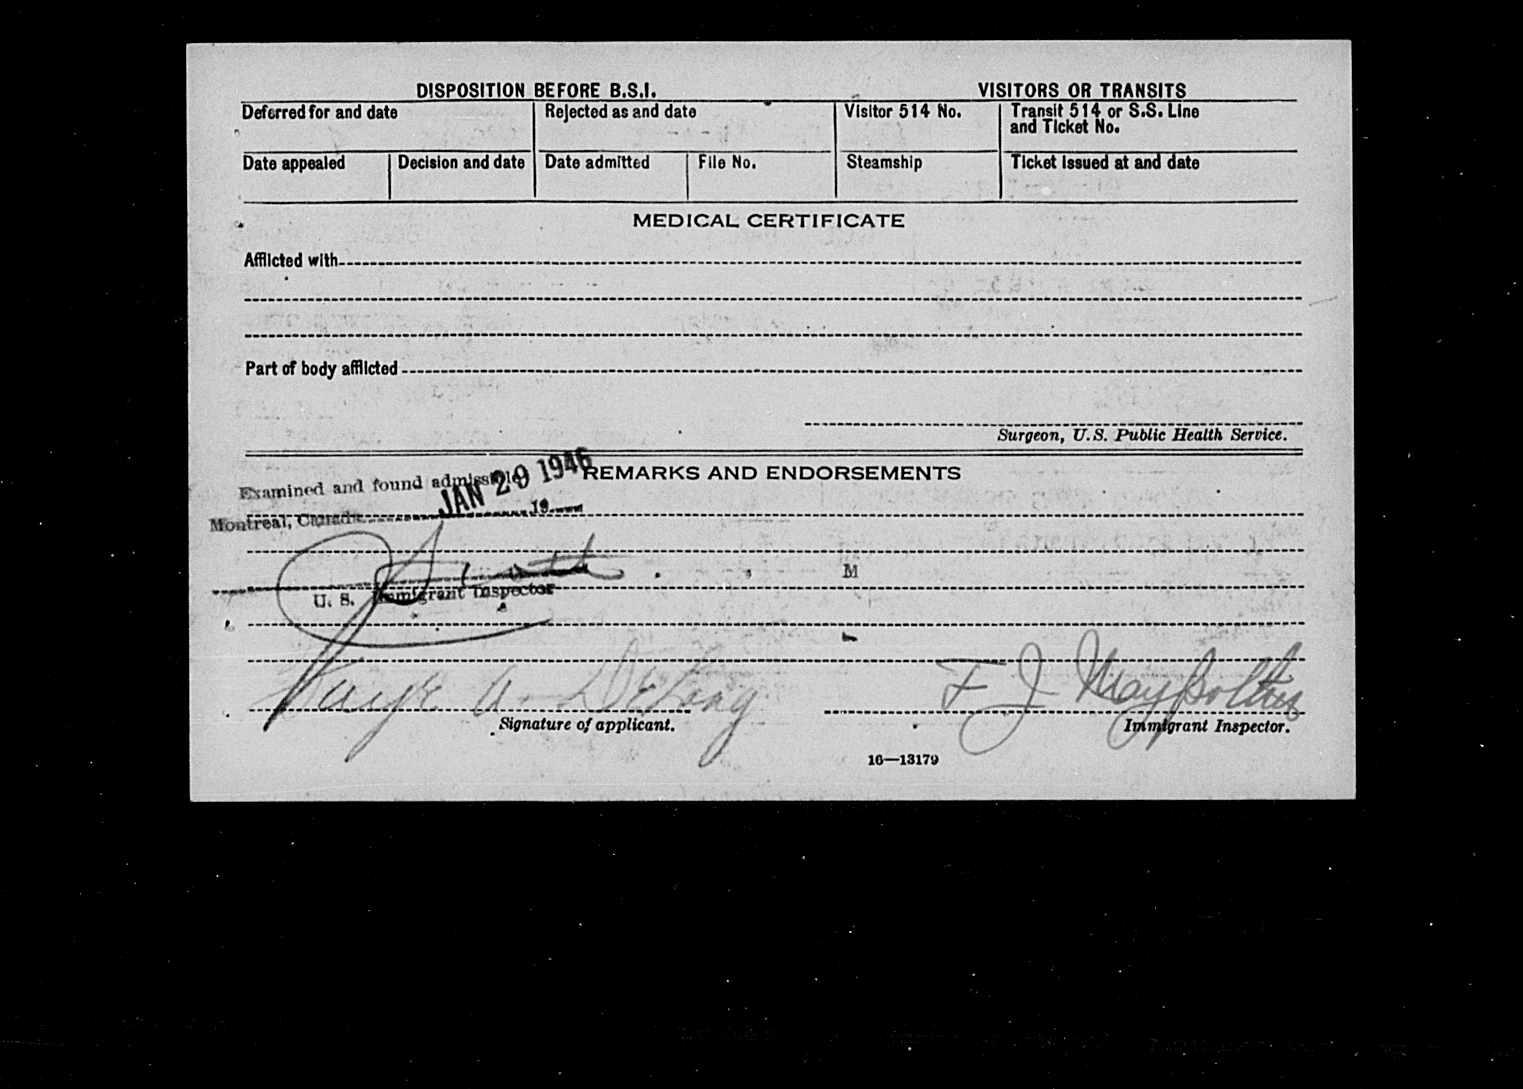 DISPOSITION BEFORE B.S.I. VISITORS OR TRANSITS
Deferred for and date Rejected as and date Visitor 514 No. Transit 514 or S.S. Line and Ticket No.
Date appealed Decision and date Date admitted File No. Steamship Ticket issued at and date
MEDICAL CERTIFICATE
Afflicted with
Part of body afflicted
Surgeon, U.S. Public Health Service.
REMARKS AND ENDORSEMENTS
Examined and found admissible
JAN 29 1946
Montreal, Canada 19
M
U. S. Immigrant Inspector
Faye A. DeLong
F J
Signature of applicant. Immigrant Inspector.
16—13179